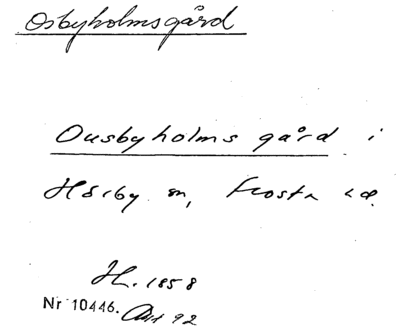 Osbyholmsgård
Ousbyholms gård i
Hörby sn, Frosta hd.
H. 1858
Nr 10446. 92